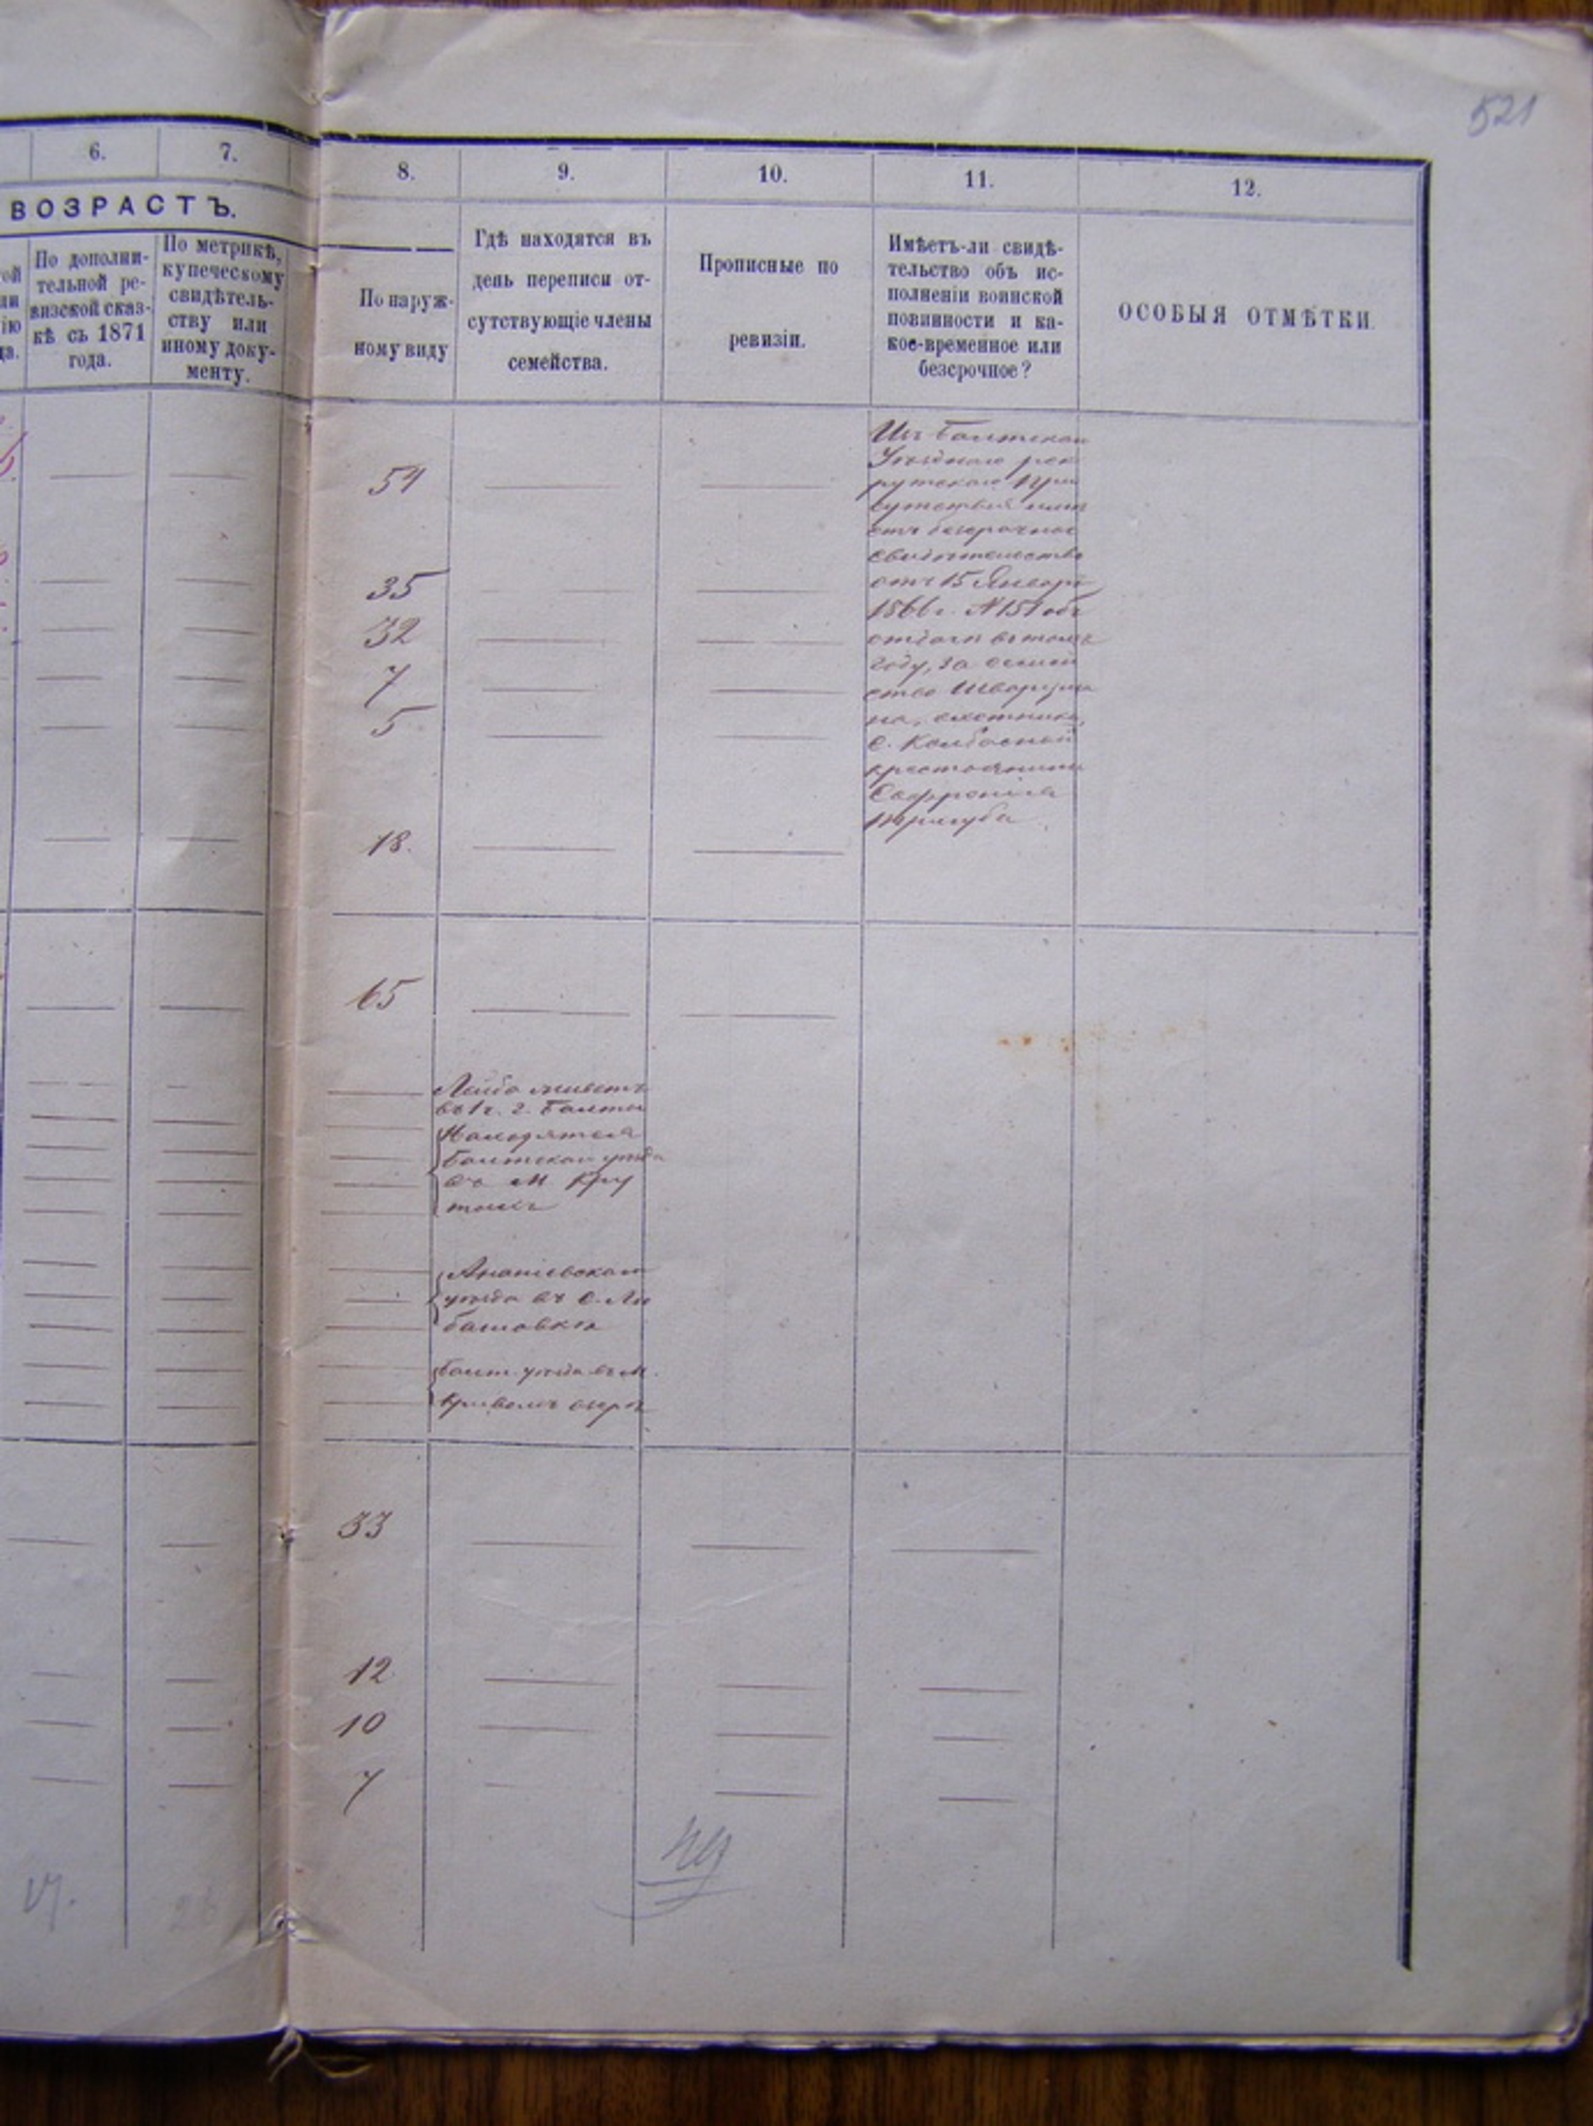 521
6. 7. 8. 9. 10. 11. 12.
ВОЗРАСТЪ.
По дополни-
тельной ре-
визской сказ-
кѣ съ 1871
года.
По метрикѣ,
купеческому
свидѣтель-
ству или
иному доку-
менту.
По наруж-
ному виду
Гдѣ находятся въ
день переписи от-
сутствующіе члены
семейства.
Прописные по
ревизіи.
Имѣетъ-ли свидѣ-
тельство объ ис-
полненіи воинской
повинности и ка-
кое-временное или
безсрочное?
ОСОБЫЯ ОТМѢТКИ.
54
Изъ Балтскаго
Уѣзднаго рек
рутскаго При
сутствія имѣ
етъ безсрочное
свидѣтельство
отъ 15 Января
1866 г. № 151 объ
отдачи въ томъ
году, за семей
ство Шварцма
на, охотника,
с. Колбасной
крестьянина
Софронія
35
32
7
5
18.
65
Лейба живетъ
въ 1 ч. г. Балты
Находятся
Балтскаго уѣзда
въ М Кру
тыхъ
Ананіевскаго
уѣзда въ с. Лю
башовкѣ
Балт. уѣзда въ М.
Кривомъ озерѣ
33
12
10
7